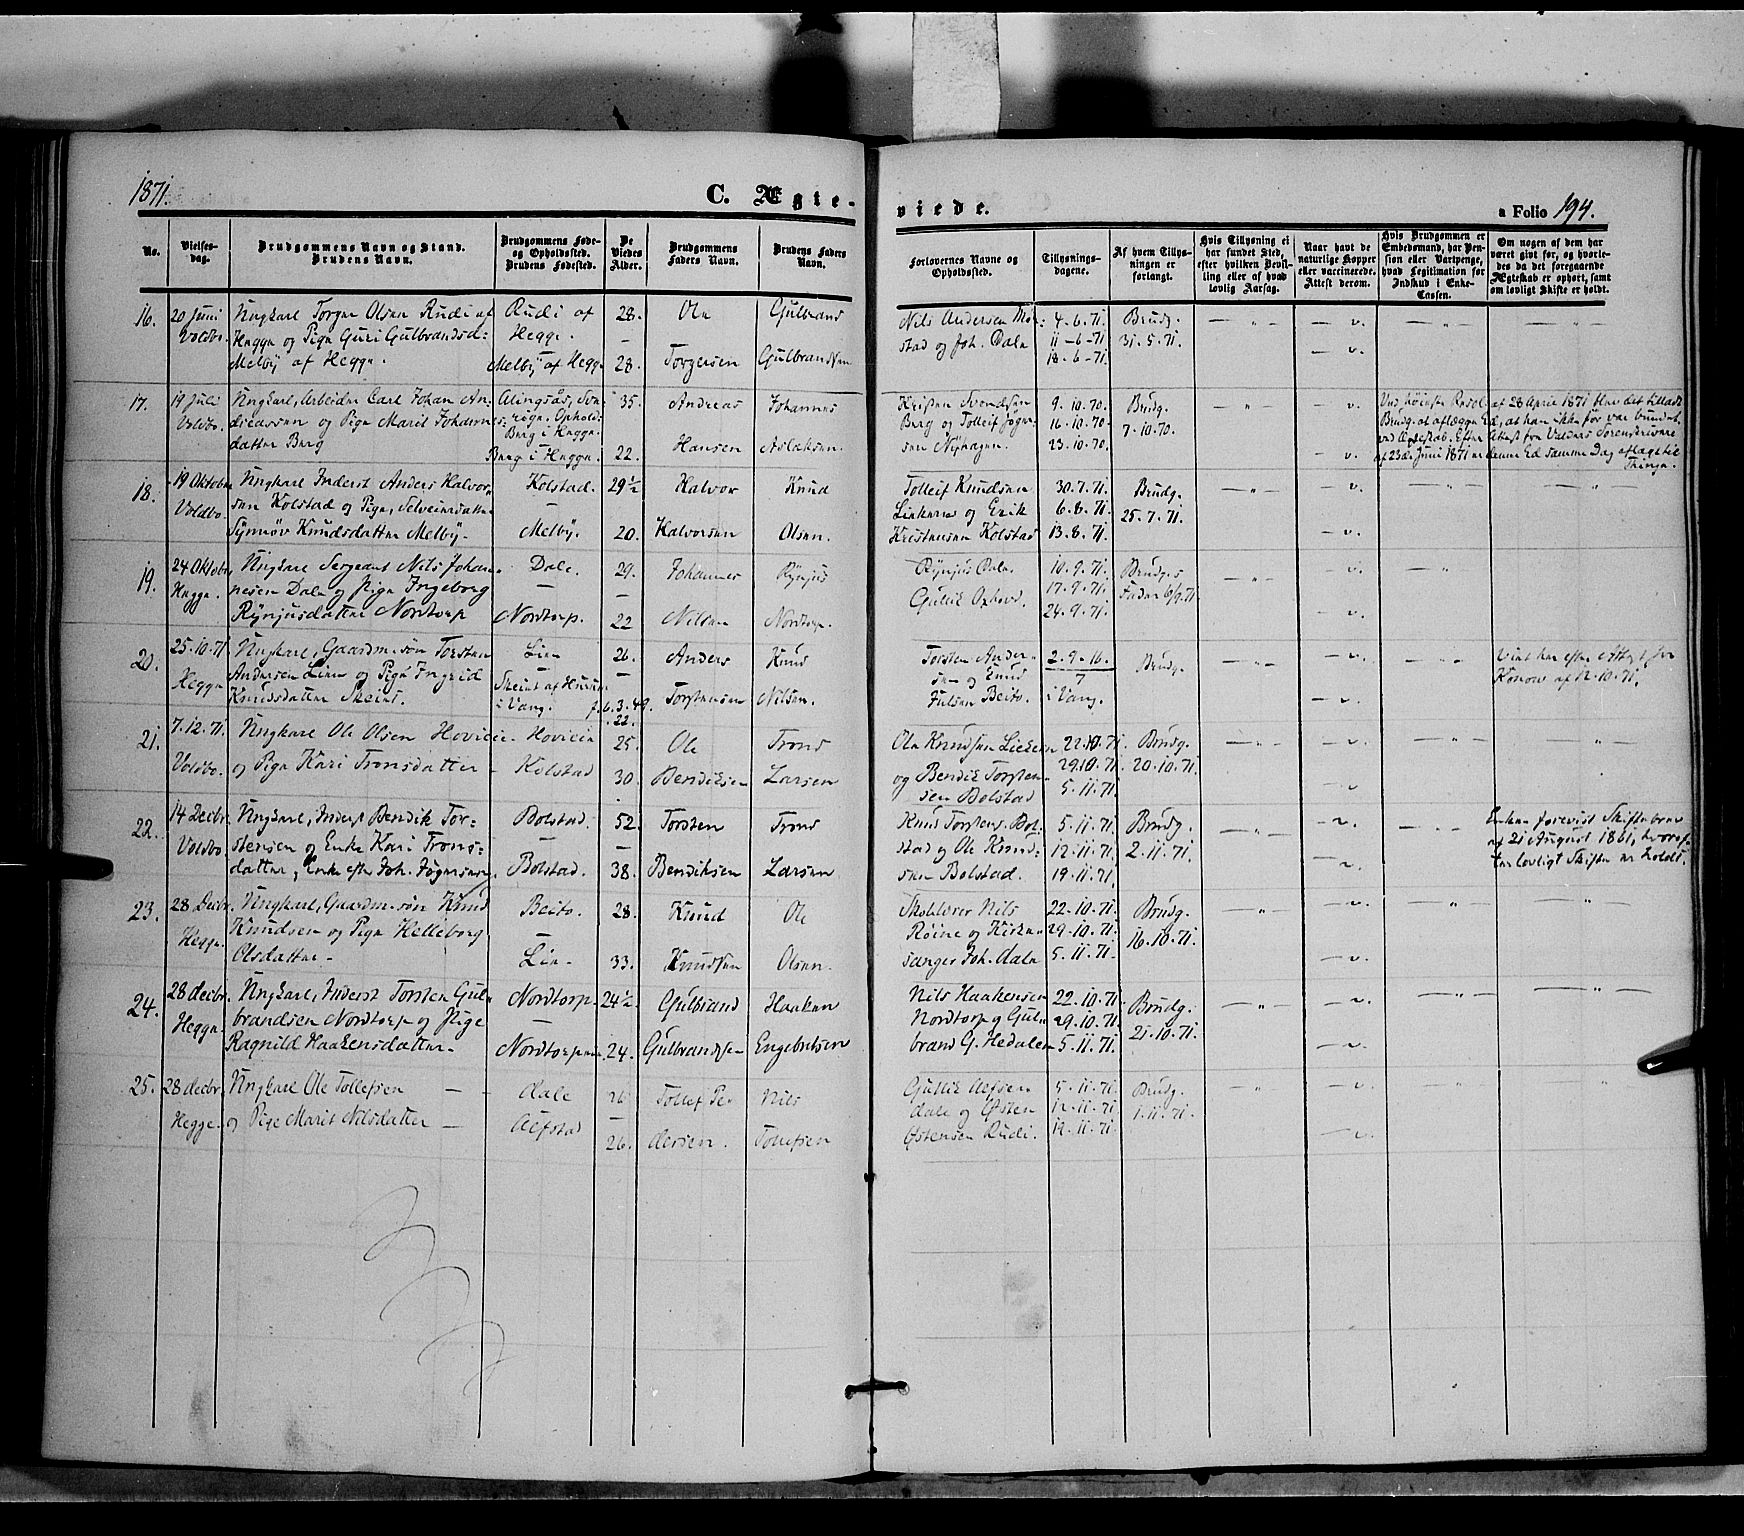 1871.
C. Ægte-
viede.
a Folio 194.
No.
Vielses-
dag.
Brudgommens Navn og Stand.
Brudens Navn.
Brudgommens Føde-
og Opholdssted.
Brudens Fødested.
De
Viedes
Alder.
Brudgommens
Faders Navn.
Brudens Faders
Navn.
Forlovernes Navne og
Opholdssted.
Tillysnings-
dagene.
Af hvem Tillys-
ningen er
forlangt.
Hvis Tillysning ei
har fundet Sted,
efter hvilken Bevil-
ling eller af hvad
lovlig Aarsag.
Naar havt de
naturlige Kopper
eller vaccinerede.
Attest derom.
Hvis Brudgommen er
Embedsmand, har Pen-
sion eller Vartpenge,
hvad Legitimation for
Indskud i Enke-
Cassen.
Om nogen af dem har
været gift før, og hvorle-
des da det foregaaende
Ægteskab er ophørt, samt
om lovligt Skifte er holdt.
16. 20 Juni Ungkarl Torger Olsen Rudi af Rudi af 28. Ole Gulbrand Nils Andersen Mør- 4.6.71. Brudg. — „ — — v. — „ — — „ —
Voldbo. Hegge og Pige Guri Gulbrandsd: Hegge. — stad og Joh. Dale 11-6-71 31.5.71.
Melby af Hegge. Melby af Hegge 28. Torgersen Gulbrandsen 18.6-71. — v.
17. 19 Juli Ungkarl, Arbeider Carl Johan An- Alingsås, Sve- 35. Andreas Johannes Kristen Svendsen 9.10.70. Brudg. „ — v. Ved høieste Resol. af 28 April 1871 blev det tilladt
Voldbo. dreassen og Pige Marit Johannes- rige. Ophold: Berg og Tolleif Jøger- 16.10.70 7.10.70. Brudg. at aflægge Ed, at han ikke før var bundet
datter Berg Berg i Hegge. 22. Hansen Aslaksen. sen Nyhagen. 23.10.70 — v. ved Ægteskab. Efter Attest fra Valders Sorenskriver
Berg i Hegge. af 23de Juni 1871 er denne Ed samme Dag aflagt til
Thinge.
18. 19 Oktober Ungkarl Inderst Anders Halvor- Kolstad. 29½ Halvor Knud Tolleif Knudsen 30.7.71. Brudg. — „ — — v. — „ — — „ —
Voldbo. sen Kolstad og Pige, Selveiersdatter — og Erik 6.8.71. 25.7.71.
Synnøv Knudsdatter Melby. Melby. 20. Halvorsen Olsen. Kristensen Kolstad 13.8.71. — v.
19. 24 Oktober Ungkarl Sergeant Nils Johan- Dale. 29. Johannes Rynjus Rynjus Dale. 10.9.71. Brudges — „ — — v. — „
Hegge. nesen Dale og Pige Ingeborg — — Gullik Oxhovd. 17.9.71. Fader 6/9.71
Rynjusdatter Nordtorp Nordtorp. 22 Nilsen Nordtorp. 24.9.71. — v.
20. 25.10.71 Ungkarl, Gaardm.søn Torsten Lien 26. Anders Knud Torsten Ander- 2.9-16. Brudg. — „ — — v. — „ — Viet her efter Attest fra
Hegge Andersen Lien og Pige Ingrid Skeins af — sen og Knud 7 Konow af 12.10.71.
Knudsdatter Skeins. i Vang. f. 6.3.49. Torstensen Nilsen. Beito. i Vang. — v.
22.
21. 7.12.71. Ungkarl Ole Olsen Hovieie- Hovieie 25. Ole Trond Ole Knudsen 22.10.71. Brudg. — „ — — v. — „ — „
Voldbo. og Pige Kari Tronsdatter - Kolstad 30. Bendiksen Larsen og Bendik Torsten- 29.10.71. 20.10.71.
sen Bolstad 5.11.71. — v.
22. 14 Decbr. Ungkarl, Inderst Bendik Tor- Bolstad. 52. Torsten Trond Knud Torstens. Bol- 5.11.71. Brudg. — „ — — v. — „ — Enken forevist Skiftebrev
Voldbo stensen og Enke Kari Trons- — — stad og Ole Knud- 12.11.71. 2.11.71. af 21 August 1861, hvoref-
datter, Enke efter Joh. Jøgersen. Bolstad. 38. Bendiksen Larsen sen Bolstad. 19.11.71. — v. ter lovligt Skifte er holdt.
23. 28 Decbr. Ungkarl, Gaardm.søn Knud Beito. 28. Knud Ole Skolelærer Nils 22.10.71. Brudg. — „ — — v. — „ — — „ —
Hegge. Knudsen og Pige Helleborg — — Røine og Kirke- 29.10.71. 16.10.71.
Olsdatter. Lien. 33. Knudsen Olsen. sanger Joh. Dale 5.11.71. — v.
24. 28 Decbr. Ungkarl, Inderst Torsten Gul- Nordtorp. 24½ Gulbrand Haaken Nils Haakensen 22.10.71. Brudg. — „ — — v. — „ — — „ —
Hegge. brandsen Nordtorp og Pige — — Nordtorp og Gul- 29.10.71. 21.10.71.
Ragnild Haakensdatter. Nordtorpeie 24. Gulbrandsen Engebritsen brand G. Hedalen 5.11.71. — v.
25. 28 Decbr. Ungkarl Ole Tollefsen — Dale 26 Tollef Pe- Nils Gullik Alfsen 5.11.71. Brudg. „ — v. „ „
Hegge. og Pige Marit Nilsdatter — Alfstad — Dale og Østen 12.11.71. 1.11.71.
26. dersen. Tollefsen Østensen Rudi. 19.11.71. — v.